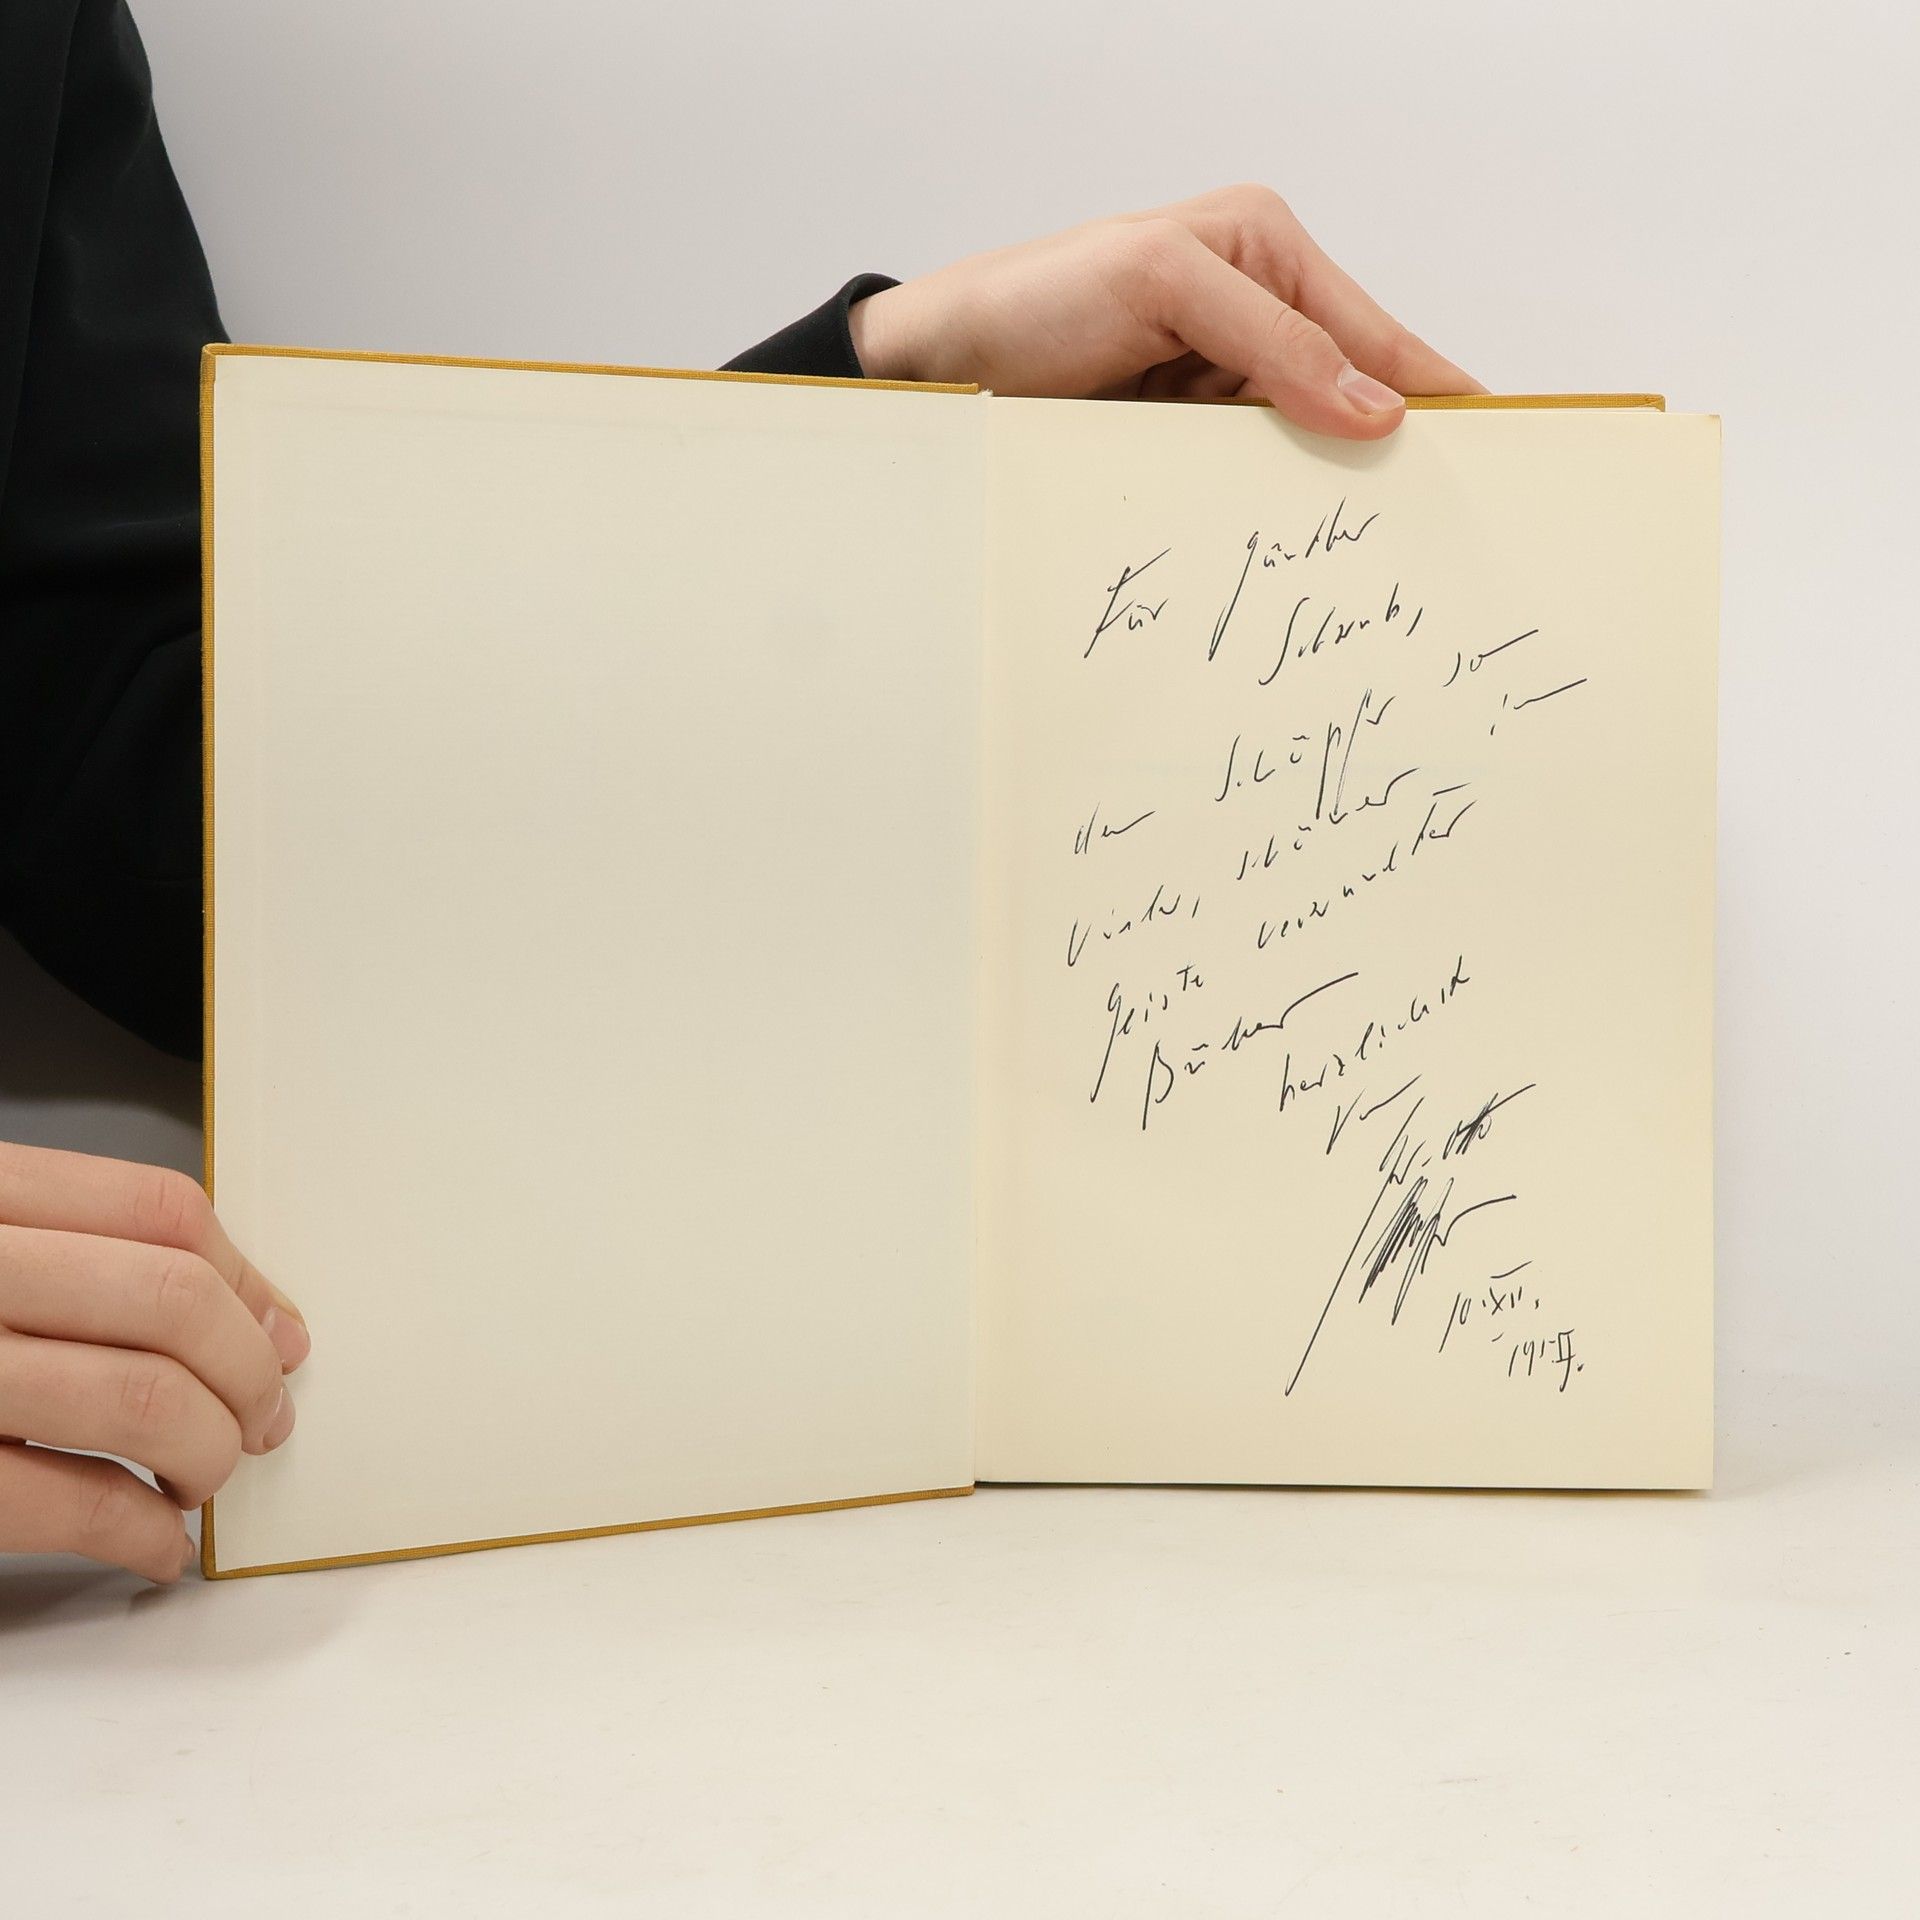 Für Günther
Schwab,
dem Schöpfer so
vieler, schöner im
Geiste verwandter
Bücher
herzlichst
von
10.XII.